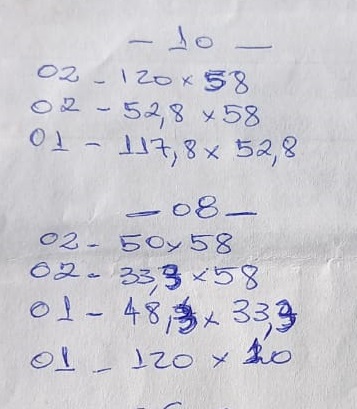 - 10 -
02 - 120 x 58
02 - 52,8 x 58
01 - 117,8 x 52,8
- 08 -
02 - 50x58
02 - 33,3 x 58
01 - 48,3 x 33,3
01 - 120 x 10